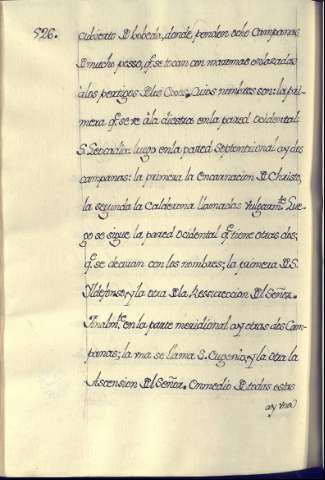 526.
cubierto de bobeda, donde penden ocho Campanas
de mucho pesso, q.e se tocan con maromas enlazadas
à los pertigos de los Cigoñ. Cuios nombres son: la pri-
mera q.e se ve à la diestra en la pared ocidental:
S. Leocadia: luego en la pared Septentrional ay dos
campanas: la primera la Encarnacion de Christo,
la segunda la Calderona llamadas Vulgarm.te Lue-
go se sigue la pared Ocidental q.e tiene otras dos;
q.e se decoran con los nombres; la primera de S.
Yldefonso, y la otra de la Ressureccion del Señor.
Finalm.te en la parte meridional ay otras dos Cam-
panas; la vna se llama S. Eugenio, y la otra la
Ascension del Señor. En medio de todas estas
ay vna